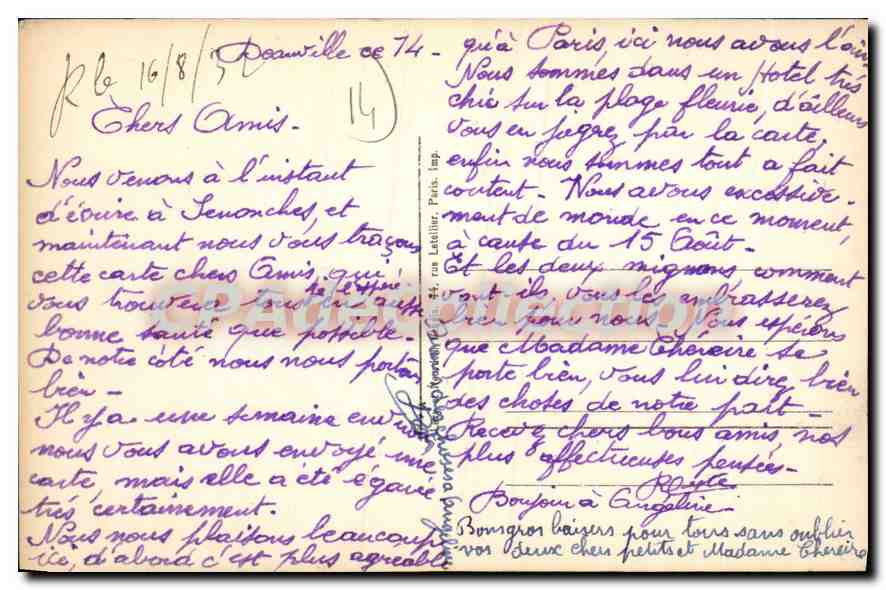 Deauville ce 14-
R le 16/8/3
14
Chers Amis-
Nous venons à l'instant
d'écrire à Senonches, et
maintenant nous vous traçons
cette carte chers Amis, qui
je l'espère
vous trouvera tous en aussi
bonne santé que possible-
De notre côté nous nous portons
bien-
Il y a une semaine environ
nous vous avons envoyé une
carte, mais elle a été égarée
très certainement.
Nous nous plaisons beaucoup
ici, d'abord c'est plus agreable
qu'à Paris, ici nous avons l'air
Nous sommes dans un Hotel très
chic sur la plage fleurie, d'ailleurs
vous en jugez par la carte,
enfin nous sommes tout a fait
content- Nous avons excessive-
ment de monde en ce moment,
à cause du 15 Août-
Et les deux mignons comment
vont ils, vous les embrasserez
bien pour nous. Nous espérons
que Madame Théreire se
porte bien, vous lui direz bien
des choses de notre part-
Recevez chers bons amis, nos
plus affectueuses pensées-
Bonjour à Angeline-
Bons gros baisers pour tous sans oublier
vos deux chers petits et Madame Théreire
44, rue Letellier, Paris. Imp.
CPA de Collection